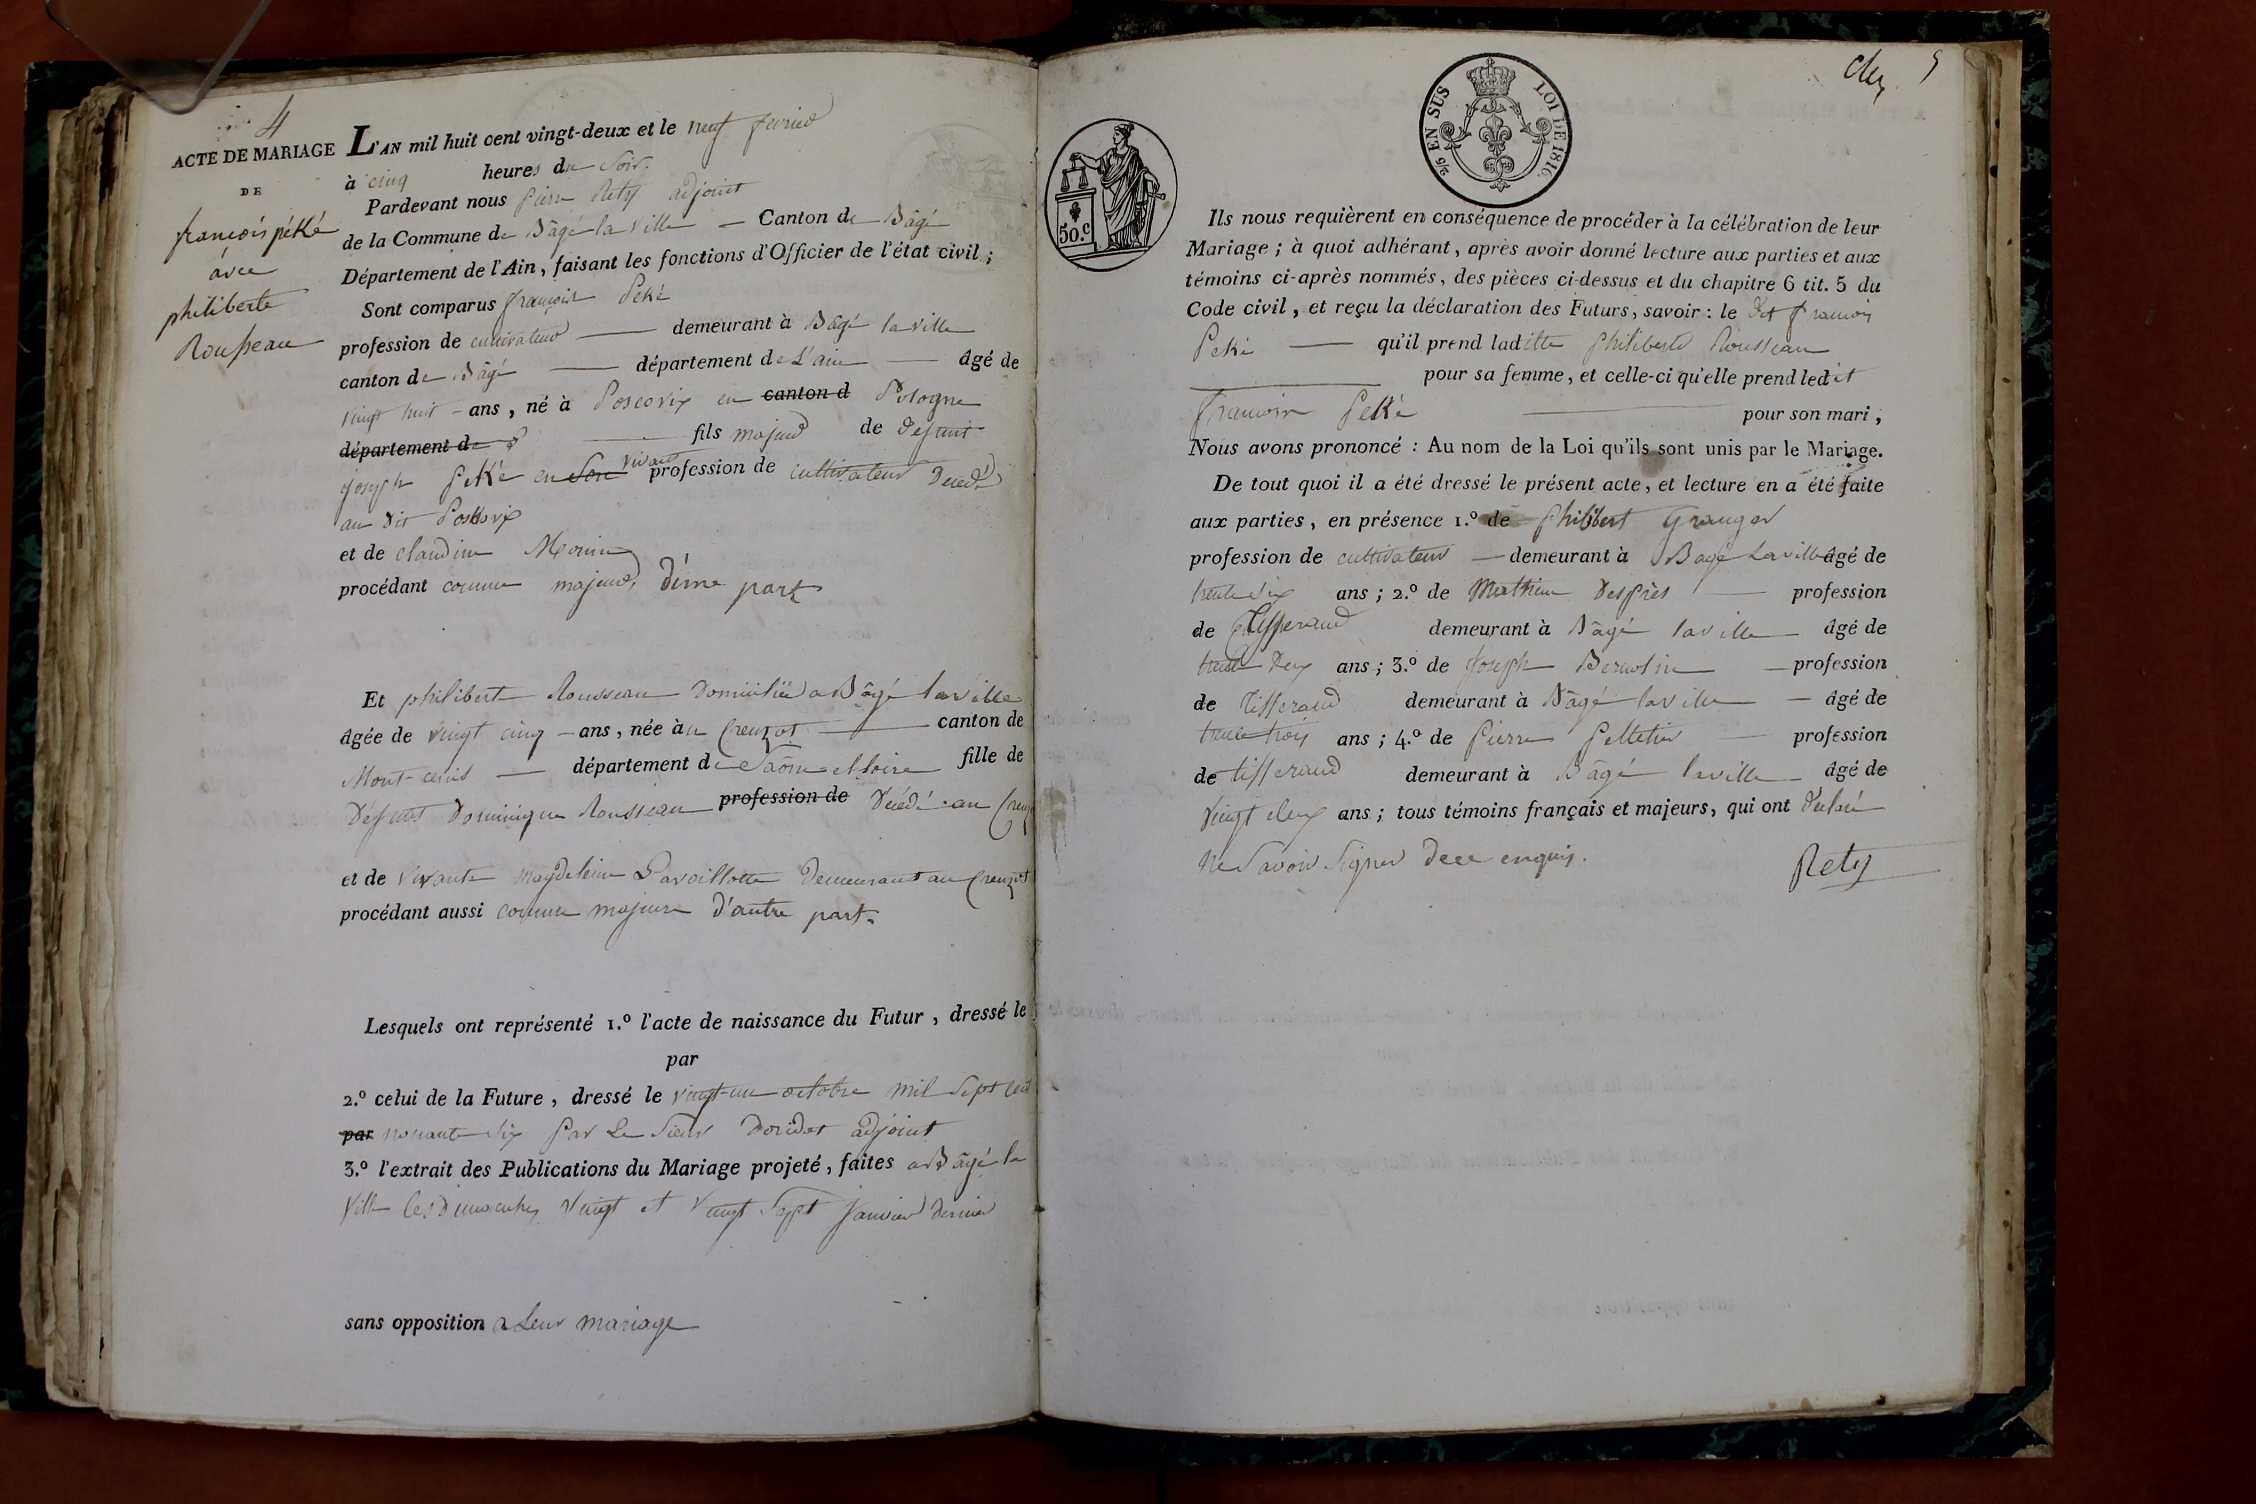 4
ACTE DE MARIAGE
DE
françois péké
avec
philiberte
Rousseau
L'AN mil huit cent vingt-deux et le neuf fevrier
à cinq heures du Soir.
Pardevant nous pierre Rety adjoint
de la Commune de Bâgé la ville — Canton de Bâgé
Département de l'Ain, faisant les fonctions d'Officier de l'état civil ;
Sont comparus françois Péké
profession de cultivateur — demeurant à Bâgé laville
canton de Bâgé — département de L'ain — âgé de
vingt huit — ans, né à en canton d Pologne
département de — fils majeur de defunt
joseph Peké en Son vivant profession de cultivateur Décédé
au dit
et de claudine
procédant comme majeur, d'une part
Et philiberte Rousseau Domiciliée a Bâgé laville
âgée de vingt cinq — ans, née au Creuzot — canton de
Mont-cenis — département de Saône et loire fille de
Défunt Dominique Rousseau profession de Décédé au Creuzot
et de vivante magdeleine Demeurant au Creuzot
procédant aussi comme majeure d'autre part.
Lesquels ont représenté 1.º l'acte de naissance du Futur, dressé le
par
2.º celui de la Future, dressé le vingt-un octobre mil sept cent
par nonante six par Le Sieur adjoint
3.º l'extrait des Publications du Mariage projeté, faites a Bâgé la
ville les Dimanches vingt et vingt sept janvier dernier
sans opposition a Leur mariage
5
2/5 EN SUS LOI DE 1816.
50.c
Ils nous requièrent en conséquence de procéder à la célébration de leur
Mariage ; à quoi adhérant, après avoir donné lecture aux parties et aux
témoins ci-après nommés, des pièces ci-dessus et du chapitre 6 tit. 5 du
Code civil, et reçu la déclaration des Futurs, savoir : le dit françois
Peké — qu'il prend laditte philiberte Rousseau
pour sa femme, et celle-ci qu'elle prend ledit
françois Peké — pour son mari ;
Nous avons prononcé : Au nom de la Loi qu'ils sont unis par le Mariage.
De tout quoi il a été dressé le présent acte, et lecture en a été faite
aux parties, en présence 1.º de philibert Granger
profession de cultivateur — demeurant à Bagé Laville âgé de
trente six ans ; 2.º de Mathieu Desprès — profession
de Tisserand demeurant à Bâgé laville — âgé de
trente deux ans ; 3.º de joseph — profession
de Tisserand demeurant à Bâgé laville — âgé de
trente trois ans ; 4.º de Pierre Pelletier — profession
de tisserand demeurant à Bâgé laville — âgé de
vingt deux ans ; tous témoins français et majeurs, qui ont déclaré
ne Savoir Signer de ce enquis.
Rety